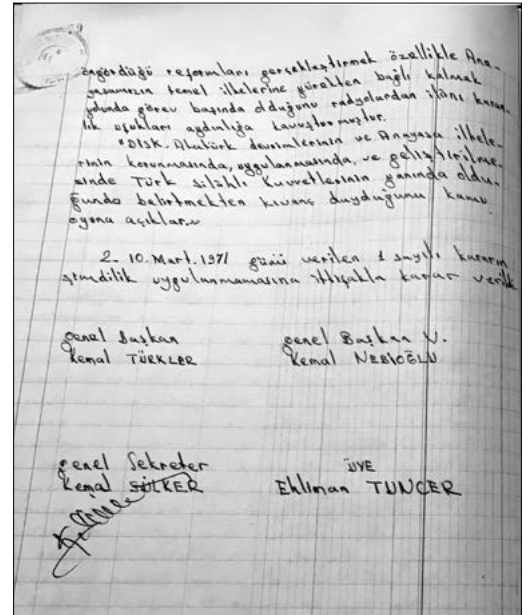 öngördüğü reformları gerçekleştirmek özellikle Ana-
yasamızın temel ilkelerine yürekten bağlı kalmak
yolunda görev başında olduğunu radyolardan ilânı karan-
lık ufukları aydınlığa kavuşturmuştur.
"DİSK. Atatürk devrimlerinin ve Anayasa ilkele-
rinin korunmasında, uygulanmasında, ve geliştirilme-
sinde Türk silahlı Kuvvetlerinin yanında oldu-
ğunda belirtmekten kıvanç duyduğunu kamu
oyuna açıklar."
2- 10.Mart.1971 günü verilen 1 sayılı kararın
şimdilik uygulanmamasına ittifakla karar verildi.
Genel Başkan
Kemal TÜRKLER
Genel Başkan V.
Kemal NEBİOĞLU
Genel Sekreter
Kemal SÜLKER
ÜYE
Ehliman TUNCER